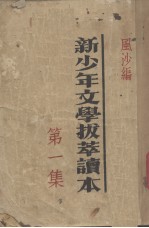 風沙編
新少年文學拔萃讀本
第一集